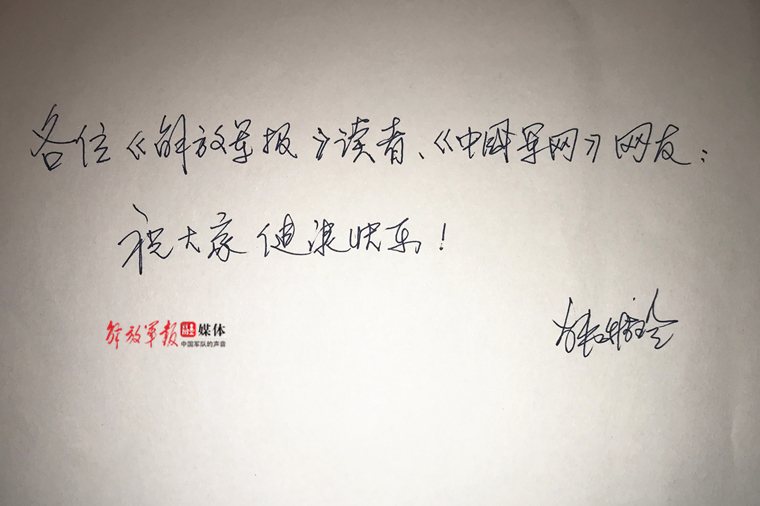 各位《解放军报》读者、《中国军网》网友：
祝大家健康快乐！
解放军报 融 媒体
中国军队的声音